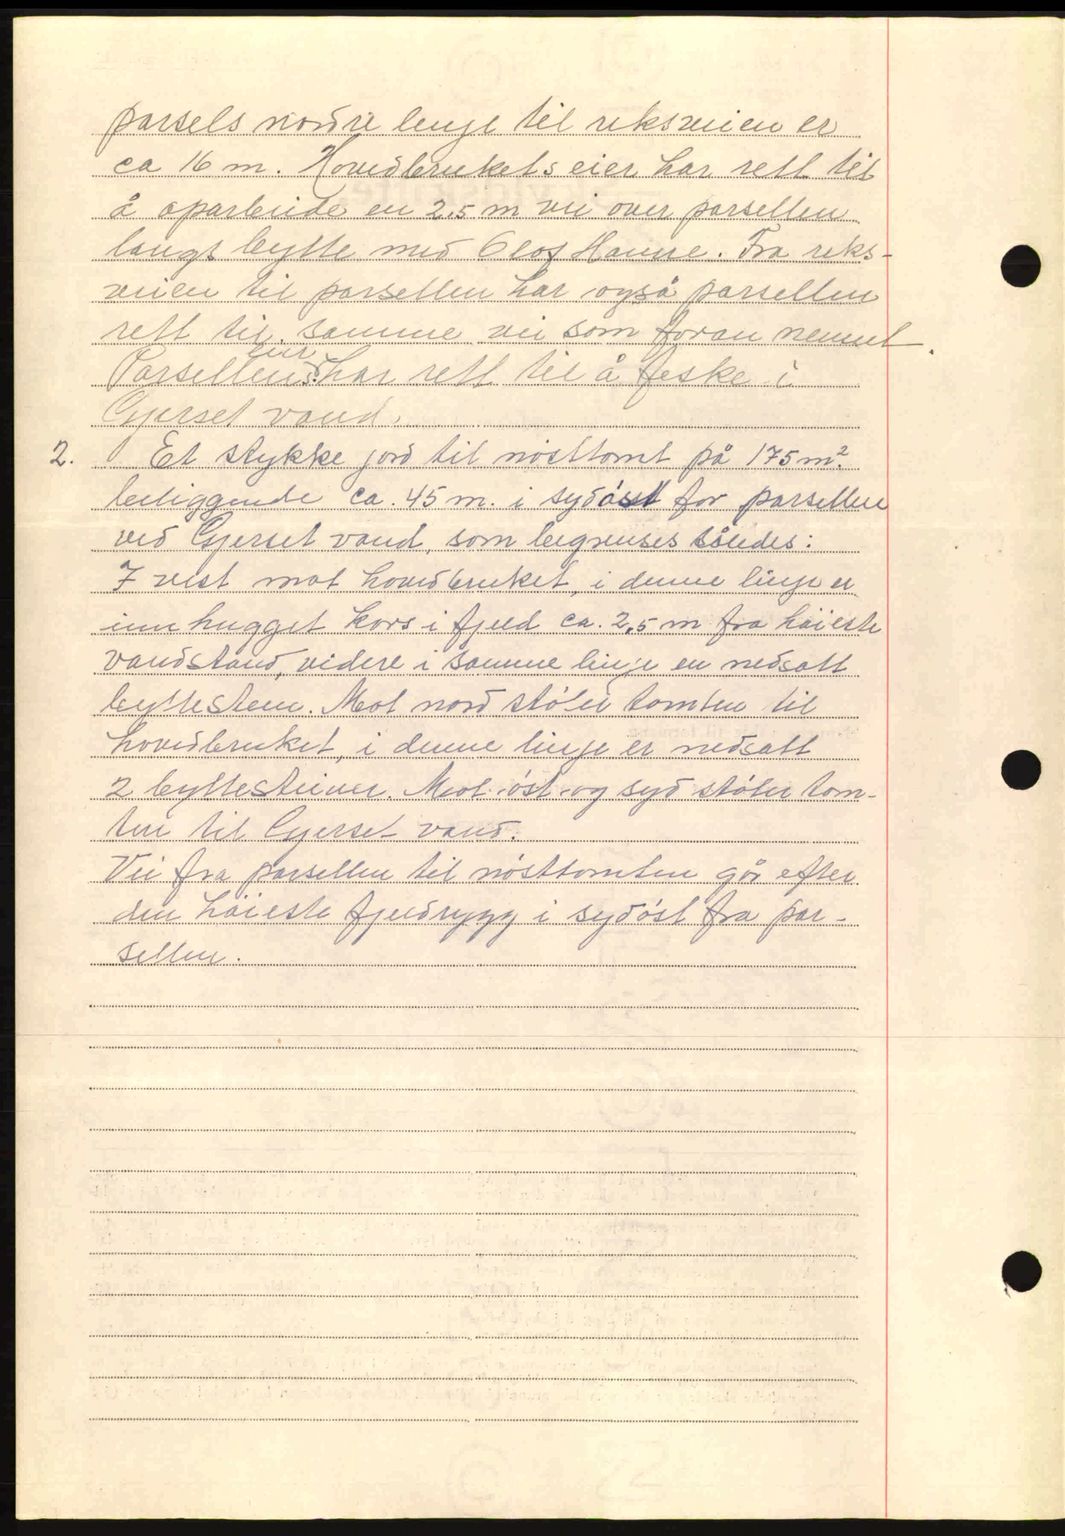 parsels nordre linje til riksveien er
ca 16 m. Hovedbrukets eier har rett til
å oparbeide en 2,5 m vei over parsellen
langs bytte med Olof Hanne. Fra riks-
veien til parsellen har også parsellen
rett til samme vei som foran nevnt.
Parsellens eier har rett til å feske i
Gjerset vand.
2. Et stykke jord til nøsttomt på 175 m².
beliggende ca. 45 m. i sydøst for parsellen
ved Gjerset vand, som begrenses således:
I vest mot hovedbruket, i denne linje er
inn hugget kors i fjeld ca. 2,5 m fra høieste
vandstand, videre i samme linje en nedsatt
byttesten. Mot nord støter tomten til
hovedbruket, i denne linje er nedsatt
2 byttesteiner. Mot øst og syd støter tom-
ten til Gjerset vand.
Vei fra parsellen til nøsttomten går efter
den høieste fjeldrygg i sydøst fra par-
sellen.